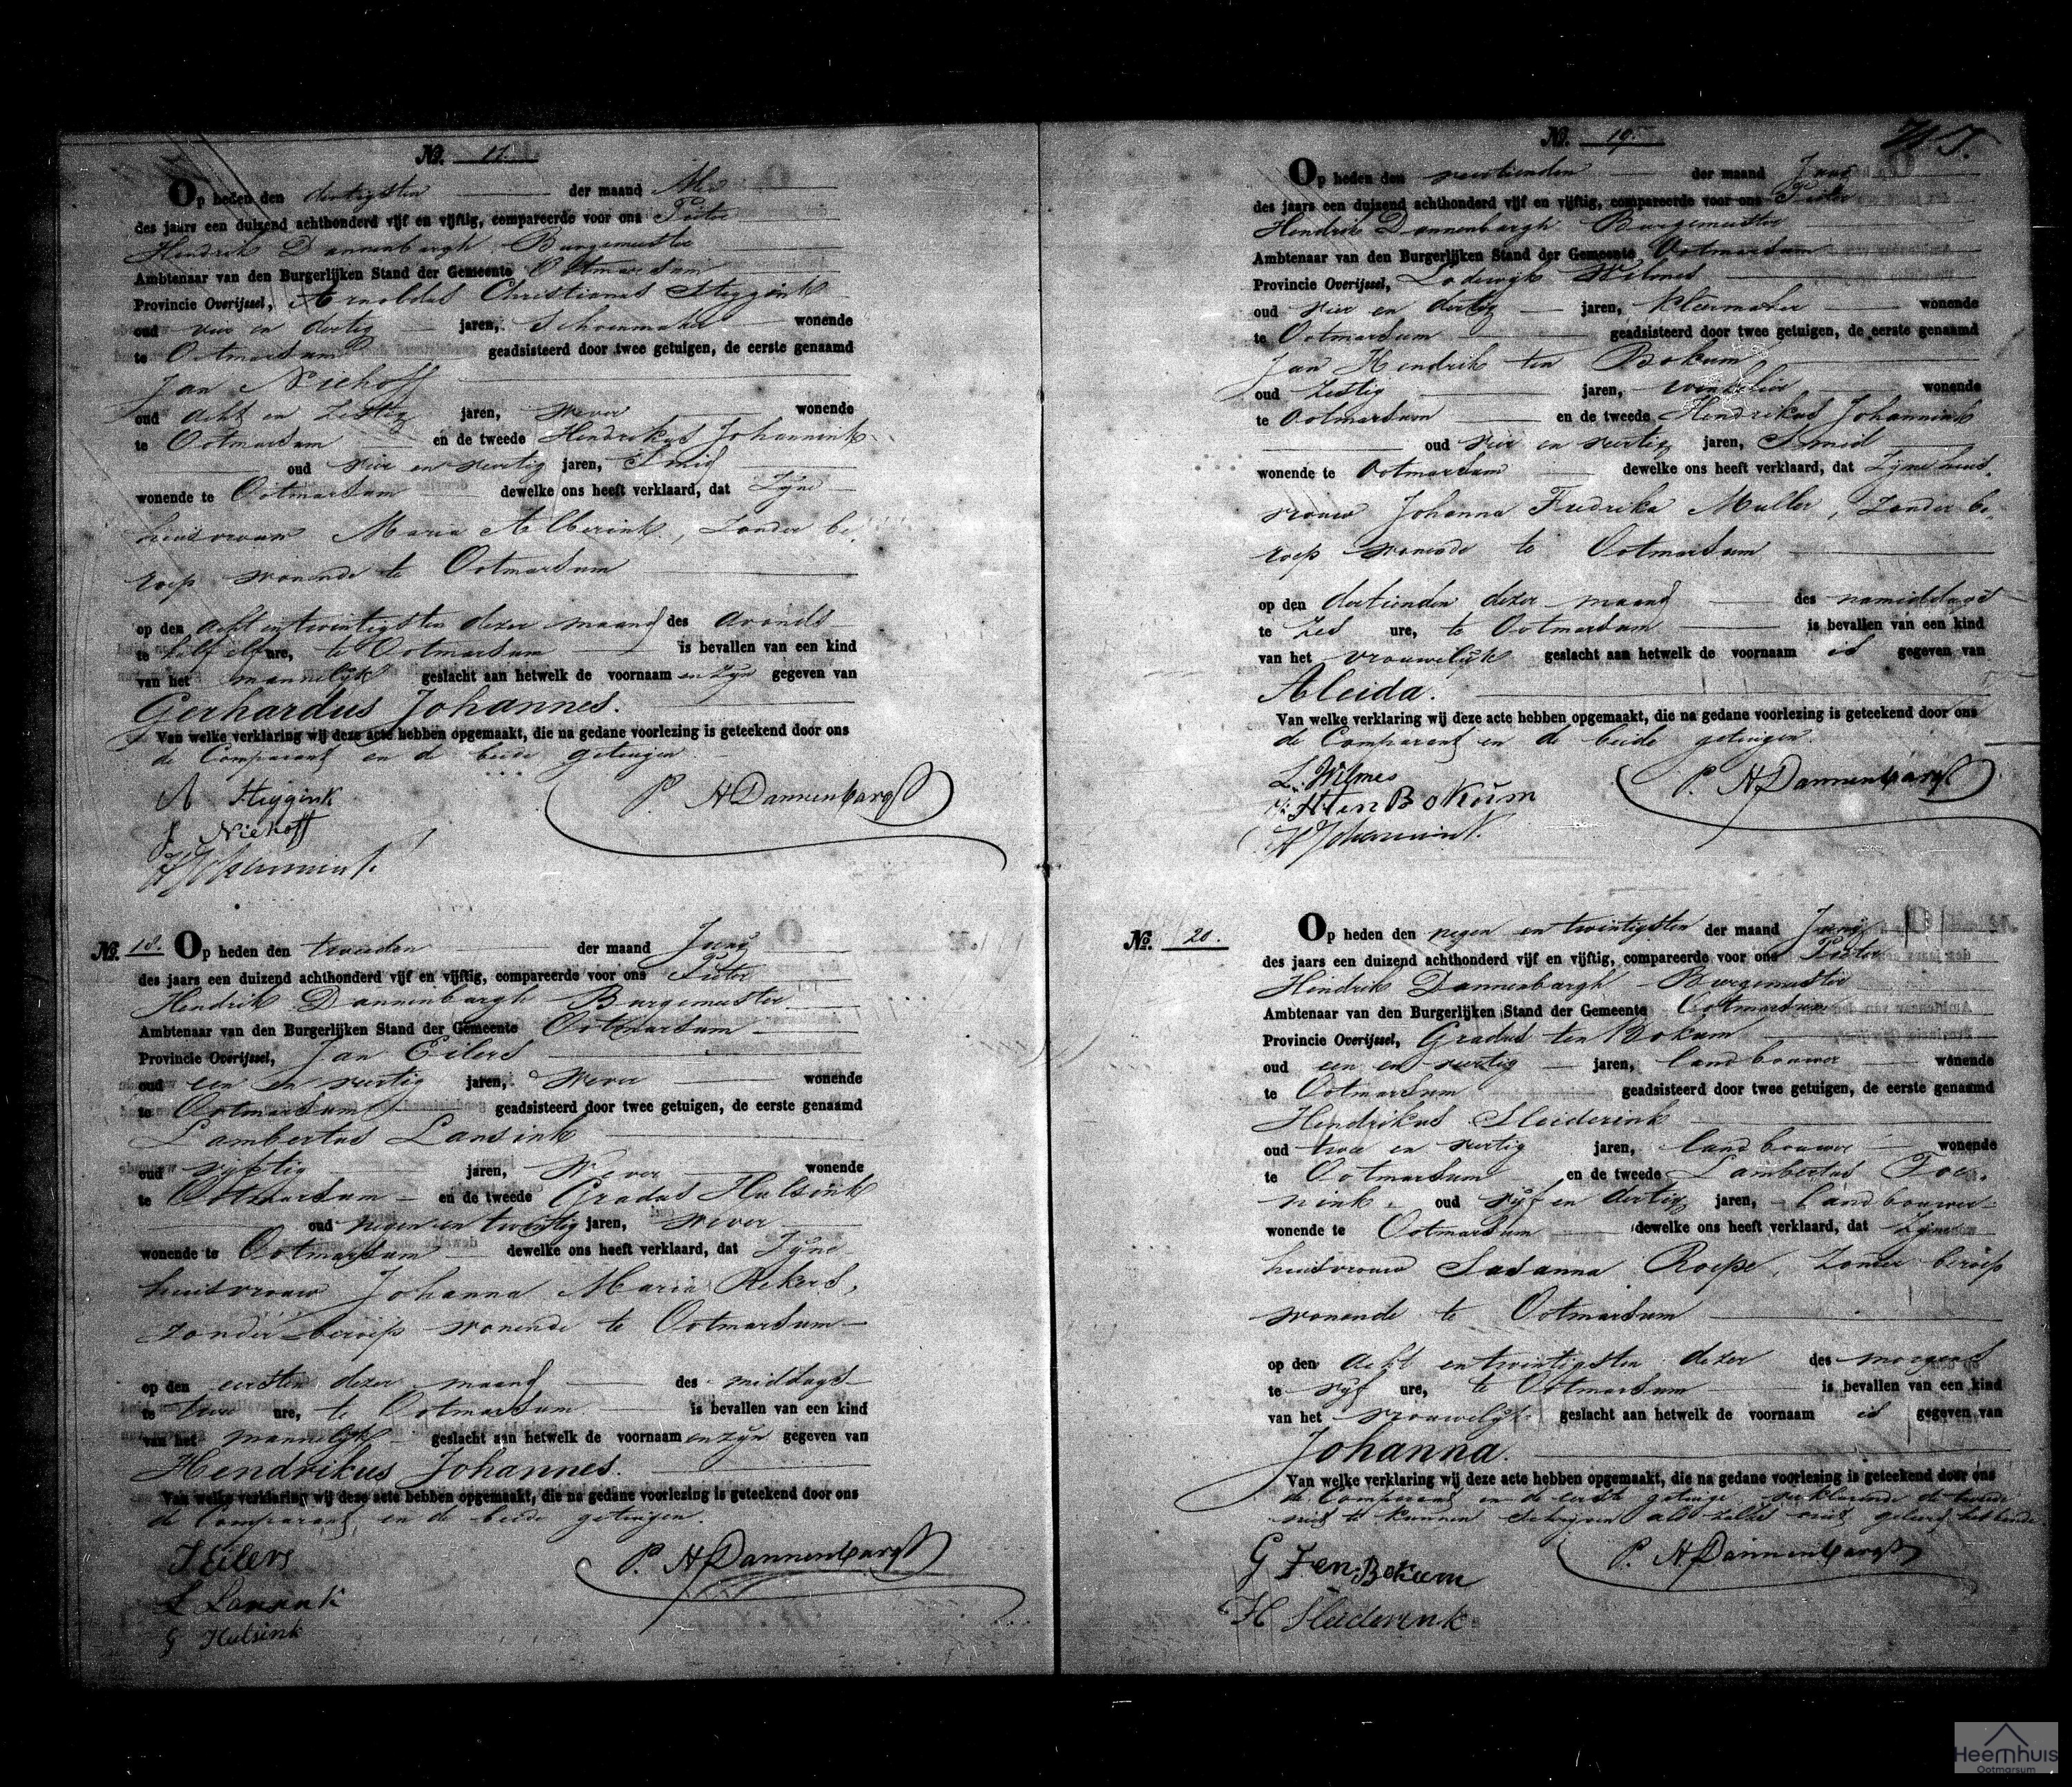 No. 17.
Op heden den dertigsten der maand Mei
des jaars een duizend achthonderd vijf en vijftig, compareerde voor ons Pieter
Hendrik Dannenbargh Burgemeester
Ambtenaar van den Burgerlijken Stand der Gemeente Ootmarsum
Provincie Overijssel, Arnoldus Christianus Heijgink
oud vier en dertig jaren, Schoenmaker wonende
te Ootmarsum geadsisteerd door twee getuigen, de eerste genaamd
Jan Niehoff
oud acht en zestig jaren, wever wonende
te Ootmarsum en de tweede Hendrikus Johannink
oud vier en veertig jaren, Smid
wonende te Ootmarsum dewelke ons heeft verklaard, dat Zijne
huisvrouw Maria Alberink, zonder be-
roep wonende te Ootmarsum
op den acht en twintigsten dezer maand des avonds
te half elf ure, te Ootmarsum is bevallen van een kind
van het mannelijk geslacht aan hetwelk de voornaam en zijn gegeven van
Gerhardus Johannes.
Van welke verklaring wij deze acte hebben opgemaakt, die na gedane voorlezing is geteekend door ons
de Comparant en de beide getuigen.
A Heijgink P. H Dannenbargh
J Niehoff
H Johannink
No. 18. Op heden den tweeden der maand Junij
des jaars een duizend achthonderd vijf en vijftig, compareerde voor ons Pieter
Hendrik Dannenbargh Burgemeester
Ambtenaar van den Burgerlijken Stand der Gemeente Ootmarsum
Provincie Overijssel, Jan Eilers
oud een en veertig jaren, Wever wonende
te Ootmarsum geadsisteerd door twee getuigen, de eerste genaamd
Lambertus Lansink
oud vijftig jaren, Wever wonende
te Ootmarsum en de tweede Gradus Hulsink
oud negen en twintig jaren, wever
wonende te Ootmarsum dewelke ons heeft verklaard, dat Zijne
huisvrouw Johanna Maria Rekers,
zonder beroep wonende te Ootmarsum
op den eersten dezer maand des middags
te twee ure, te Ootmarsum is bevallen van een kind
van het mannelijk geslacht aan hetwelk de voornaam en zijn gegeven van
Hendrikus Johannes.
Van welke verklaring wij deze acte hebben opgemaakt, die na gedane voorlezing is geteekend door ons
de Comparant en de beide getuigen.
J Eilers P. H Dannenbargh
L Lansink
G Hulsink
No. 19.
Op heden den veertienden der maand Junij
des jaars een duizend achthonderd vijf en vijftig, compareerde voor ons Pieter
Hendrik Dannenbargh Burgemeester
Ambtenaar van den Burgerlijken Stand der Gemeente Ootmarsum
Provincie Overijssel, Lodewijk Wilmes
oud vier en dertig jaren, kleermaker wonende
te Ootmarsum geadsisteerd door twee getuigen, de eerste genaamd
Jan Hendrik ten Bokum
oud zestig jaren, winkelier wonende
te Ootmarsum en de tweede Hendrikus Johannink
oud vier en veertig jaren, Smid
wonende te Ootmarsum dewelke ons heeft verklaard, dat Zijne huis-
vrouw Johanna Fredrika Muller, zonder be-
roep wonende te Ootmarsum
op den dertienden dezer maand des namiddags
te zes ure, te Ootmarsum is bevallen van een kind
van het vrouwelijk geslacht aan hetwelk de voornaam is gegeven van
Aleida.
Van welke verklaring wij deze acte hebben opgemaakt, die na gedane voorlezing is geteekend door ons
de Comparant en de beide getuigen.
L. Wilmes P. H Dannenbargh
H ten Bokum
H Johannink
No. 20. Op heden den negen en twintigsten der maand Junij
des jaars een duizend achthonderd vijf en vijftig, compareerde voor ons Pieter
Hendrik Dannenbargh Burgemeester
Ambtenaar van den Burgerlijken Stand der Gemeente Ootmarsum
Provincie Overijssel, Gradus ten Bokum
oud een en veertig jaren, landbouwer wonende
te Ootmarsum geadsisteerd door twee getuigen, de eerste genaamd
Hendrikus Sleiderink
oud twee en veertig jaren, landbouwer wonende
te Ootmarsum en de tweede Lambertus
oud vijf en dertig jaren, landbouwer
wonende te Ootmarsum dewelke ons heeft verklaard, dat Zijne
huisvrouw Susanna Roepe, zonder beroep
wonende te Ootmarsum
op den acht en twintigsten dezer des morgens
te vijf ure, te Ootmarsum is bevallen van een kind
van het vrouwelijk geslacht aan hetwelk de voornaam is gegeven van
Johanna.
Van welke verklaring wij deze acte hebben opgemaakt, die na gedane voorlezing is geteekend door ons
de Comparant en de eerste getuige verklarende de tweede
niet te kunnen schrijven als zulks niet geleerd hebbende
G Ten Bokum P. H Dannenbargh
H Sleiderink
Heemhuis
Ootmarsum